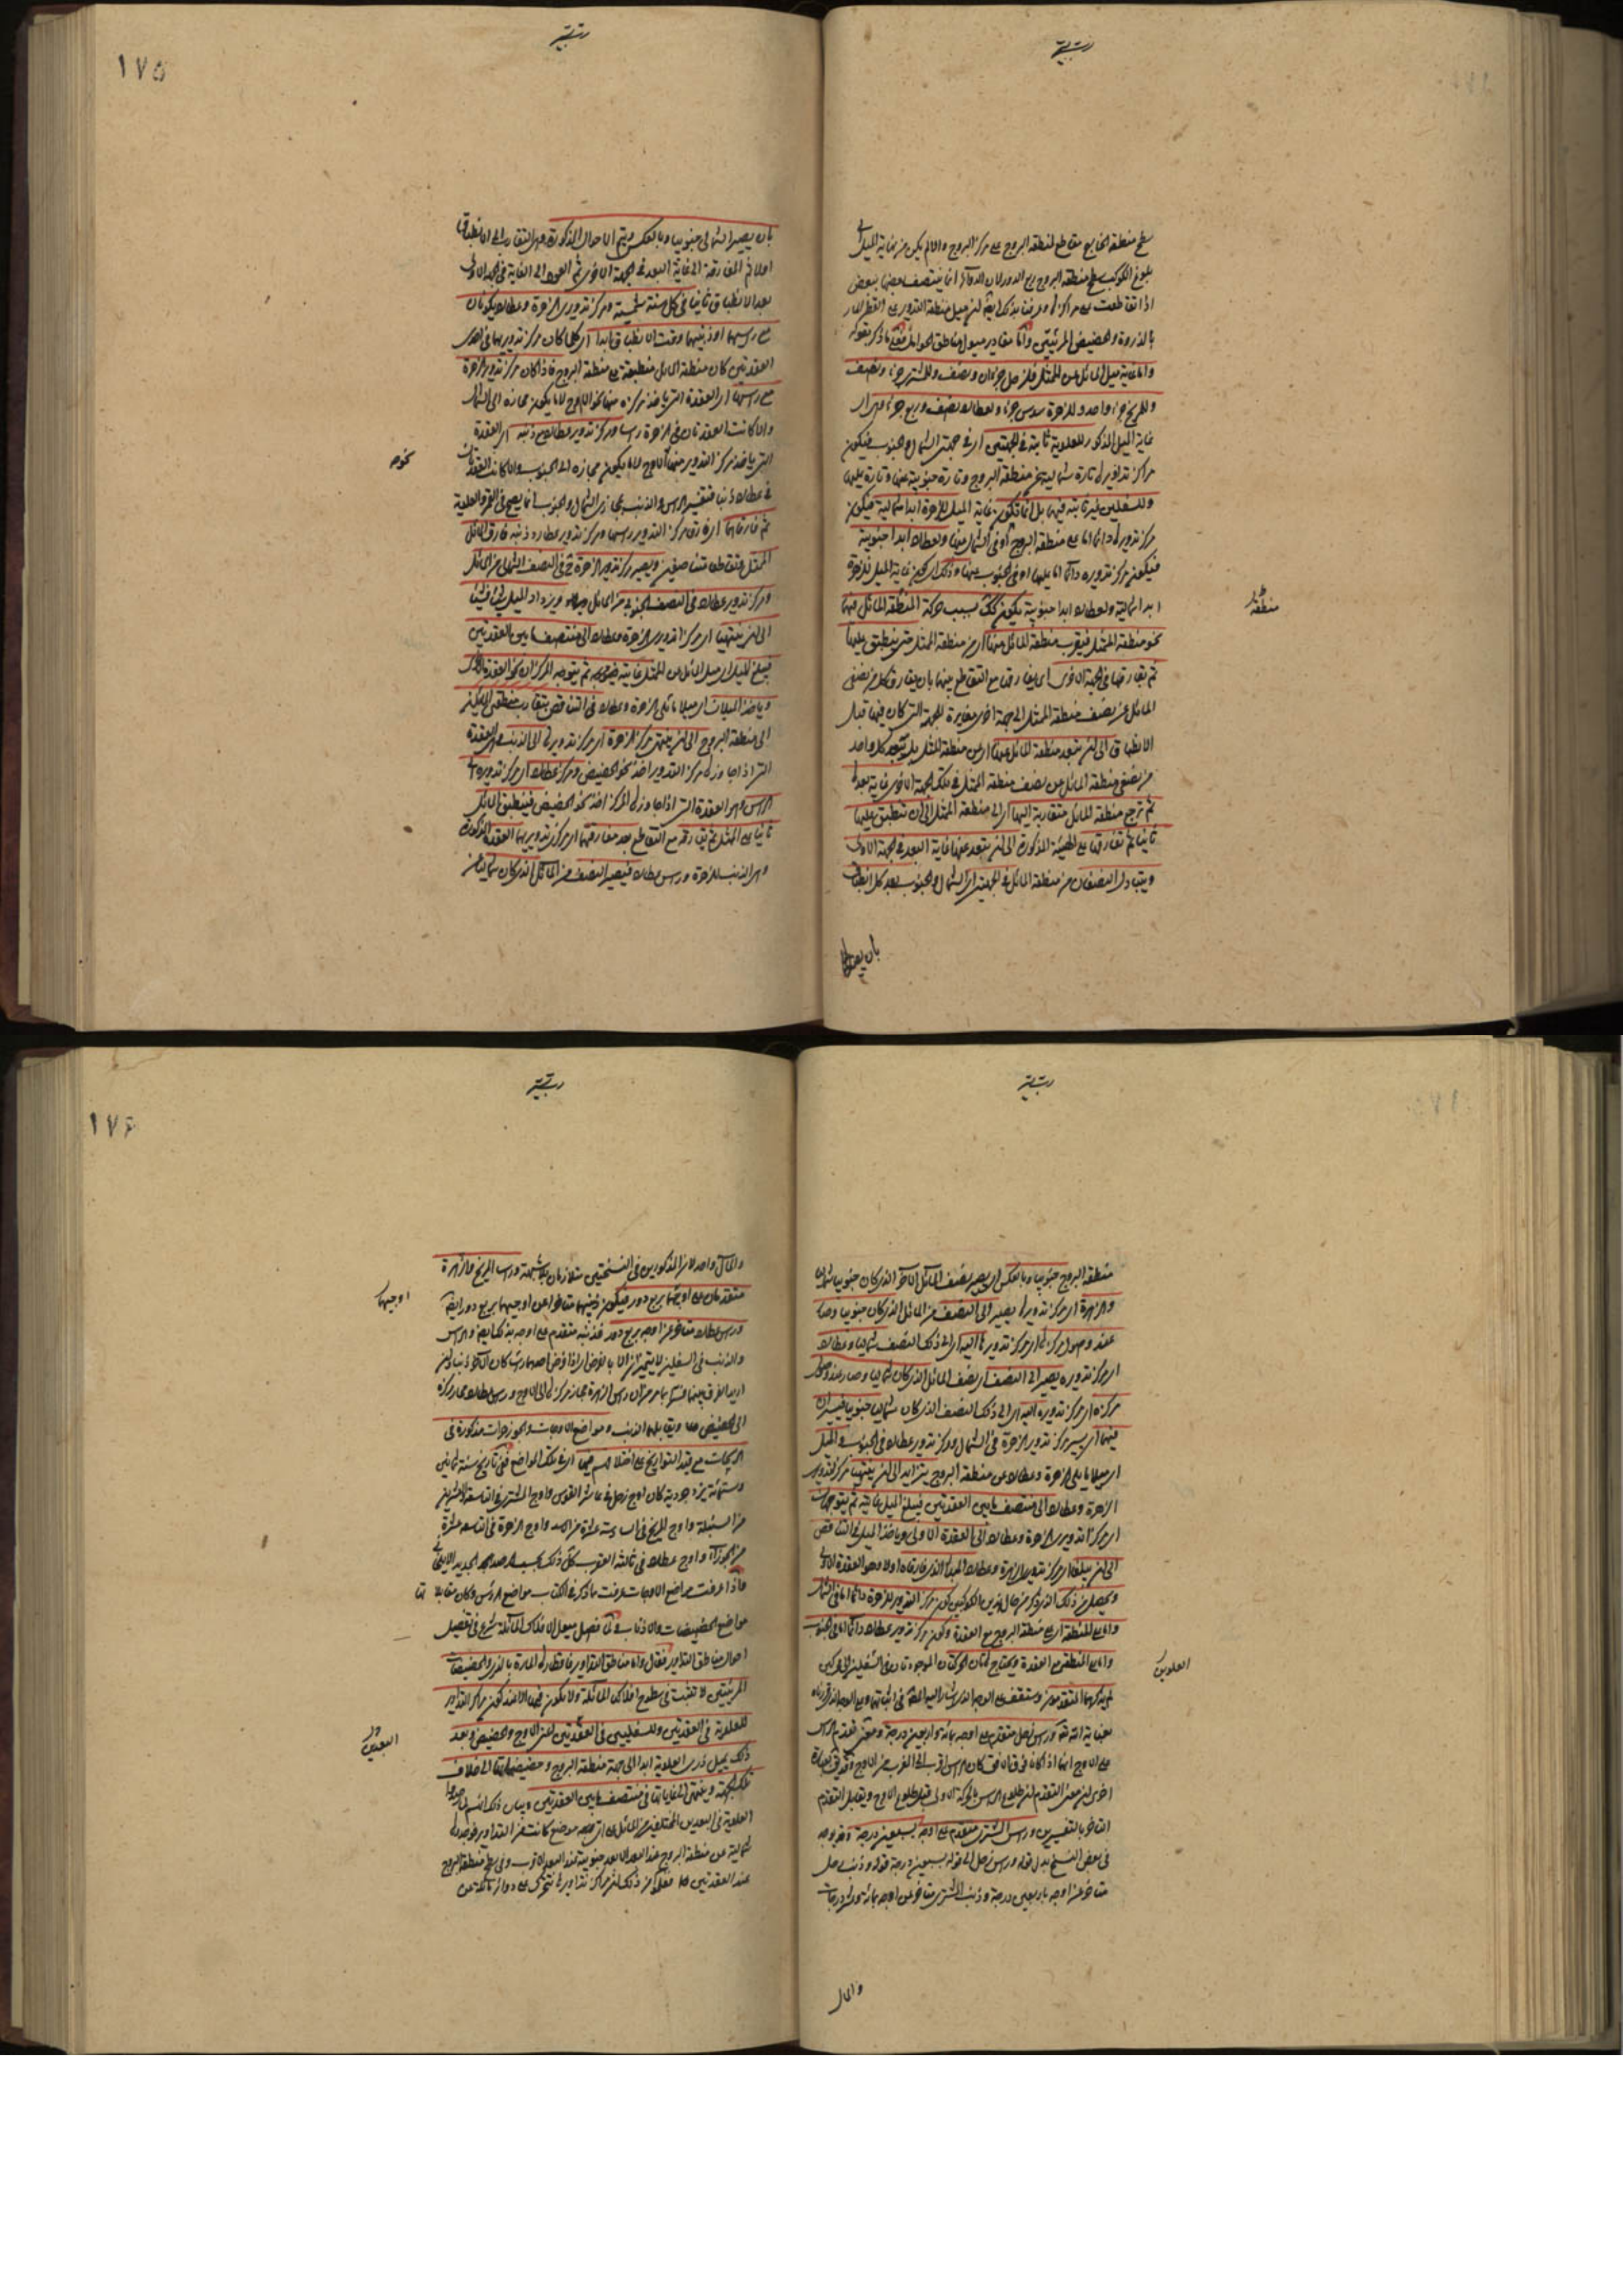 سطح منطقة الخارج مقاطع لمنطقة البروج على مركز البروج والا لم يكن من غاية الميل الى
بلوغ الكوكب سطح منطقة البروج ربع الدور لان الدوائر انما ينتصف بعضها ببعض
اذا تقاطعت على مراكزها
بالذروة والحضيض المرئيتين واما مقادير ميول مناطق الحوامل فعلى ما ذكر بقوله
واما غاية ميل المائل عن الممثل فلزحل جزءان ونصف وللمشترى جزء ونصف
وللمريخ جزء واحد وللزهرة سدس جزء ولعطارد نصف وربع جزء وهى اى
غاية الميل المذكور للعلوية ثابتة فى الجهتين اى فى جهتى الشمال والجنوب فيكون
مراكز تداويرها تارة شمالية عن منطقة البروج وتارة جنوبية عنها وتارة عليها
وللسفليين غير ثابتة فيهما بل انما تكون غاية الميل للزهرة ابدا شمالية فيكون
مركز تدويرها دائما اما على منطقة البروج او فى الشمال عنها ولعطارد ابدا جنوبية
فيكون مركز تدويره دائما اما عليها او فى الجنوب عنها وذلك اى كون غاية الميل للزهرة
ابدا شمالية ولعطارد ابدا جنوبية يكون بسبب حركة المنطقة المائل فيهما
منطقة
نحو منطقة الممثل فيقرب منطقة المائل منها اى من منطقة الممثل حتى ينطبق عليها
ثم يفارقها فى الجهة الاخرى اى يفارقها مع التقاطع بينهما بان يفارق كل من نصفى
المائل عن نصف منطقة الممثل الى جهة اخرى مغايرة للجهة التى كان فيها قبل
الانطباق الى ان يبعد منطقة المائل عنها اى عن منطقة الممثل بل يبعد كل واحد
من نصفى منطقة المائل عن نصف منطقة الممثل فى تلك الجهة الاخرى غاية بعدها
ثم ترجع منطقة المائل متقاربة اليها اى الى منطقة الممثل الى ان تنطبق عليها
ثانيا ثم تفارقها على الهيئة المذكورة الى ان يبعد عنها غاية البعد فى الجهة الاولى
ويتبادل النصفان من منطقة المائل فى الجهتين اى الشمال والجنوب بعد كل انطباق
بان يصير
١٧٥
بان يصير الشمالى جنوبيا وبالعكس ويتم الاحوال المذكورة وهى التقارب الى الانطباق
اولا ثم المفارقة الى غاية البعد فى الجهة الاخرى ثم العود الى الغاية فى الجهة الاولى
بعد الانطباق ثانيا فى كل سنة شمسية ومركز تدويرى الزهرة وعطارد يكونان
على راسيهما او ذنبيهما وقت الانطباق ابدا اى كلما كان مركز تدويريهما فى احدى
العقدتين كان منطقة المائل منطبقة على منطقة البروج فاذا كان مركز تدوير الزهرة
على راسها اى العقدة التى ياخذ مركزه منها نحو الاوج لا ما يكون مجازه الى الشمال
والا كانت العقدتان فى الزهرة راسا ومركز تدوير عطارد على ذنبه اى العقدة
التى ياخذ مركز التدوير منها الاوج لا ما يكون مجازه الى الجنوب والا كانت العقدتان
نحو
فى عطارد ذنبا فتفسير الراس والذنب بمجازى الشمال والجنوب انما يصح فى القمر والعلوية
ثم فارقاهما اى فارق مركز التدوير راسها ومركز تدوير عطارد ذنبه فارق المائل
الممثل ويصير مركز تدوير الزهرة فى النصف الشمالى من المائل
ومركز تدوير عطارد فى النصف الجنوبى من المائل ويزداد الميل شيئا فشيئا
الى ان ينتهيا اى مركزا تدويرى الزهرة وعطارد الى منتصف ما بين العقدتين
فيبلغ الميل اى ميل المائل عن الممثل غايته ثم يتوجه المركزان نحو العقدة
وياخذ الميلان اى ميلا مائلى الزهرة وعطارد فى التناقص بتقارب منطقتى المائلين
الى منطقة البروج الى ان ينتهى مركز الزهرة اى مركز تدويرها الى الذنب وهى العقدة
التى اذا جاوزها مركز التدوير اخذ نحو الحضيض ومركز عطارد اى مركز تدويره الى
الراس وهو العقدة التى اذا جاوزها المركز اخذ نحو الحضيض فينطبق المائل
ثانيا على الممثل ثم يفارقه مع التقاطع بعد مفارقتهما اى مركزى تدويريهما العقدة المذكورة
وهى الذنب للزهرة وراس عطارد فيصير النصف من المائل الذى كان شماليا عن
منطقة البروج جنوبيا وبالعكس اى يصير نصف المائل الاخر الذى كان جنوبيا شماليا
والزهرة اى مركز تدويرها يصير الى النصف من المائل الذى كان جنوبيا وصار
عند وصول مركزها اى مركز تدويرها اليه اى الى ذلك النصف شماليا وعطارد
اى مركز تدويره يصير الى النصف اى نصف المائل الذى كان شماليا وصار عند وصول
مركزه اى مركز تدويره اليه اى الى ذلك النصف الذى كان شماليا جنوبيا فيسيران
فيهما اى يسير مركز تدوير الزهرة فى الشمال ومركز تدوير عطارد فى الجنوب والميل
اى ميلا مائلى الزهرة وعطارد عن منطقة البروج يتزايد الى ان ينتهيا مركزا تدويرى
الزهرة وعطارد الى منتصف ما بين العقدتين فيبلغ الميل غايته ثم يتوجهان
اى مركزا تدويرى الزهرة وعطارد الى العقدة الاولى وياخذ الميل فى التناقص
الى ان يبلغا اى مركز تدوير الزهرة وعطارد المبدأ الذى فارقاه اولا وهو العقدة الاولى
ويحصل من ذلك الذى ذكر من حال هذين الكوكبين كون مركز التدوير للزهرة دائما اما فى الشمال
واما على المنطقة اى على منطقة البروج مع العقدة وكون مركز تدوير عطارد دائما اما فى الجنوب
واما على المنطقة مع العقدة ويحتاج هاتان الحركتان الموجودتان فى السفليين الى محركين
العلويين
لم يذكرهما المتقدمون وستقف على الوجه الذى
بعناية الله تعالى وراس زحل متقدم على اوجه بمائة واربعين درجة ومعنى تقدم الراس
على الاوج انهما اذا كانا فوق الارض كان الراس اقرب الى الغرب من الاوج
اخرى ان معنى التقدم ان طلوع الراس بالحركة الاولى قبل طلوع الاوج ويقابل التقدم
التاخر بالتفسيرين وراس المشترى متقدم على اوجه بسبعين درجة
فى بعض النسخ بدل قوله وراس زحل الى قوله بسبعين درجة قوله وذنب زحل
متاخر عن اوجه باربعين درجة وذنب المشترى متاخر عن اوجه بمائة وعشر درجات
والمال
١٧٦
والمآل واحد لان المذكورين فى النسختين متلازمان وراس المريخ والزهرة
متقدمان على اوجيهما بربع دور فيكون ذنبهما متاخرا عن اوجيهما بربع دور ايضا
اوجيهما
وراس عطارد متاخر عن اوجه بربع دور فذنبه متقدم على اوجه بذلك ايضا والراس
والذنب فى السفليين لا يتميزان الا بالفرض اى اذا فرض احدهما راسا كان الاخر ذنبا وان
اريد الفرق بينهما فسر بما مر من ان راس الزهرة مجاز مركزها الى الاوج وراس عطارد مجاز مركزه
الى الحضيض ويقابلهما الذنب ومواضع الاوجات والجوزهرات مذكورة فى
الزيجات مع قيد التواريخ على اختلافهم فيها اى فى تلك المواضع ففى تاريخ سنة ثمانين
وستمائة يزدجردية كان اوج زحل فى عاشرة القوس واوج المشترى فى التاسعة والعشرين
من السنبلة واوج المريخ فى السادسة عشرة من الاسد واوج الزهرة فى التاسعة عشرة
من الجوزاء واوج عطارد فى ثالثة العقرب كل ذلك بحسب الرصد الجديد الايلخانى
فاذا عرفت مواضع الاوجات عرفت بما ذكر فى الكتاب مواضع الرؤس وكان مقابلاتها
مواضع الحضيضات والاذناب ولما فصل ميول الافلاك المائلة شرع فى تفصيل
احوال مناطق التداوير فقال واما مناطق التداوير فاقطارها المارة بالذرى والحضيضات
المرئيتين لا تثبت فى سطوح افلاكها المائلة ولا يكون فيها الا عند كون مراكز التداوير
للعلوية فى العقدتين وللسفليين فى العقدتين اعنى الاوج والحضيض وبعد
البعدين
ذلك يميل ذرى العلوية ابدا الى جهة منطقة البروج وحضيضاتها الى خلاف
تلك الجهة وينتهى الى غاياتها فى منتصف ما بين العقدتين وبيان ذلك انهم لما وجدوا
العلوية فى البعدين المختلفين من المائل على اى موضع كانت من التداوير فوجدوها
شمالية عن منطقة البروج عند البعد الابعد جنوبية عند البعد الاقرب وفى سطح منطقة البروج
عند العقدتين فعلم من ذلك ان مراكز تداويرها تتحرك على دوائر مائلة عن